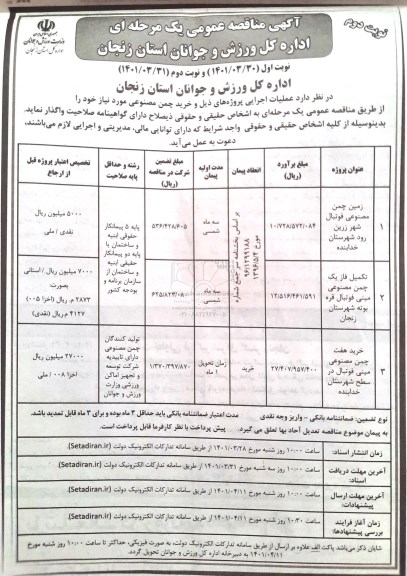 نوبت دوم
آگهی مناقصه عمومی یک مرحله ای
اداره کل ورزش و جوانان استان زنجان
نوبت اول (۱۴۰۱/۰۳/۳۰) و نوبت دوم (۱۴۰۱/۰۳/۳۱)
اداره کل ورزش و جوانان استان زنجان
در نظر دارد عملیات اجرایی پروژه‌های ذیل و خرید چمن مصنوعی مورد نیاز خود را
از طریق مناقصه عمومی یک مرحله‌ای به اشخاص حقیقی و حقوقی ذیصلاح دارای گواهینامه صلاحیت واگذار نماید.
بدینوسیله از کلیه اشخاص حقیقی و حقوقی واجد شرایط که دارای توانایی مالی، مدیریتی و اجرایی لازم می‌باشند،
دعوت به عمل می‌آید.
عنوان پروژه
مبلغ برآورد (ریال)
انعقاد پیمان
مدت اولیه پیمان
مبلغ تضمین شرکت در مناقصه (ریال)
رشته و حداقل پایه صلاحیت
تخصیص اعتبار پروژه قبل از ارجاع
۱
زمین چمن
مصنوعی فوتبال
شهر زرین
رود شهرستان
خدابنده
۱۰/۷۲۸/۵۷۲/۰۸۴
بر اساس بخشنامه سرجمع شماره ۹۶/۱۲۹۹۱۸۸ مورخ ۱۳۹۶/۵/۴
سه ماه شمسی
۵۳۶/۴۲۸/۶۰۵
پایه ۵ پیمانکار
حقوقی ابنیه
و ساختمان یا
پایه دو پیمانکار
حقیقی ابنیه
و ساختمان از
سازمان برنامه و
بودجه کشور
۵۰۰۰ میلیون ریال
نقدی / ملی
۲
تکمیل فاز یک
چمن مصنوعی
مینی فوتبال قره
بوته شهرستان
زنجان
۱۲/۵۱۶/۴۶۱/۵۹۱
سه ماه شمسی
۶۲۵/۸۲۳/۰۸۰
۷۰۰۰ میلیون ریال / استانی
بصورت
۲۸۷۳ م.ریال (اخزا ۰۰۵)
۴۱۲۷ م.ریال (نقدی)
۳
خرید هفت
چمن مصنوعی
مینی فوتبال در
سطح شهرستان
خدابنده
۲۷/۴۰۷/۹۵۷/۴۰۰
خرید
زمان تحویل ۱ ماه
۱/۳۷۰/۳۹۷/۸۷۰
تولید کنندگان
چمن مصنوعی
دارای تاییدیه
شرکت توسعه
و تجهیز اماکن
ورزشی وزارت
ورزش و جوانان
۲۷۰۰۰ میلیون ریال
اخزا ۰۰۸ / ملی
نوع تضمین: ضمانتنامه بانکی - واریز وجه نقدی مدت اعتبار ضمانتنامه بانکی باید حداقل ۳ ماهه بوده و برای ۳ ماه قابل تمدید باشد.
به پیمان موضوع مناقصه تعدیل آحاد بها تعلق می گیرد. پیش پرداخت با نظر کارفرما قابل پرداخت است.
زمان انتشار اسناد: ساعت ۱۰:۰۰ روز شنبه مورخ ۱۴۰۱/۰۳/۲۸ از طریق سامانه تدارکات الکترونیک دولت (Setadiran.ir)
آخرین مهلت دریافت اسناد: ساعت ۱۰:۰۰ روز سه شنبه مورخ ۱۴۰۱/۰۳/۳۱ از طریق سامانه تدارکات الکترونیک دولت (Setadiran.ir)
آخرین مهلت ارسال پیشنهادات: ساعت ۱۰:۰۰ روز شنبه مورخ ۱۴۰۱/۰۴/۱۱ از طریق سامانه تدارکات الکترونیک دولت (Setadiran.ir)
زمان آغاز فرایند بررسی پیشنهادها: ساعت ۱۰:۳۰ روز شنبه مورخ ۱۴۰۱/۰۴/۱۱ از طریق سامانه تدارکات الکترونیک دولت (Setadiran.ir)
شایان ذکر می‌باشد پاکت الف علاوه بر ارسال از طریق سامانه تدارکات الکترونیک دولت، به صورت فیزیکی، حداکثر تا ساعت ۱۰:۰۰ روز شنبه مورخ
۱۴۰۱/۰۴/۱۱ به دبیرخانه اداره کل ورزش و جوانان تحویل گردد.